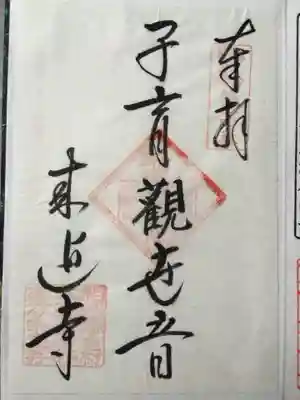 奉拝
子育觀世音
来迎寺